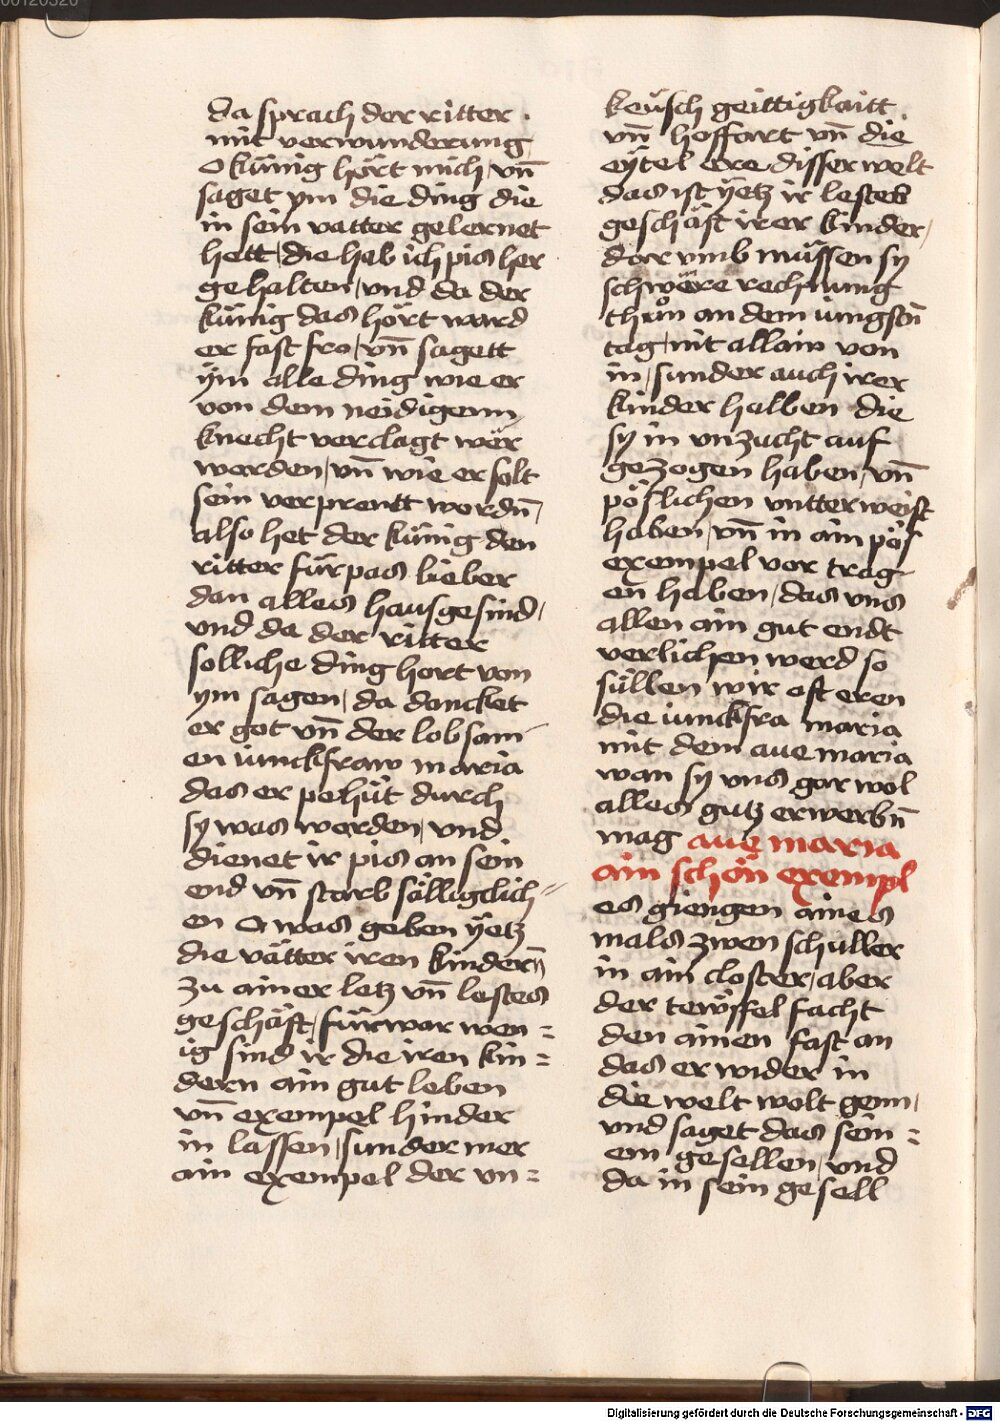 da sprach der ritter .
mit verwunderung
O künig hört mich vn̄
saget ym die ding die
in sein vatter gelernet
hett / die hab ich pis her
gehalten / vnd da der
künig das hört ward
er fast fro / vn̄ sagett
ÿm alle ding wie er
von dem neidigenn
knecht verclagt wër
worden / vn̄ wie er solt
sein verprentt wordn̄ /
also het der künig den
ritter fürpas lieber
dan alles hausgesind /
vnd da der ritter
solliche ding hort von
ym sagen / da dancket
er got vn̄ der lobsam
en iunckfraw maria
das er pehüt durch
sy was worden / vnd
dienet ir pis an sein
end vn̄ starb sälligclich //
en O was geben ÿetz
die vätter iren kindern̄
zu ainer letz vn̄ lestes
geschäft / fürwar wen =
ig sind ir die iren kin =
dern ain gut leben
vn̄ exempel hinder
in lassen / sunder mer
ain exempel der vn =
keüsch geittigkaitt .
vn̄ hoffart vn̄ die
eÿtel ere disser welt
das ist ÿetz ir lestes
geschäft irer kinder /
dar vmb müssen sy
schwëre rechnung
thůn an dem iungsn̄
tag / nit allain von
in / sunder auch irer
kinder halben die
sy in vnzucht auf
gezogen haben / vn̄
pöslichen vntterweist
haben / vn̄ in ain pös
exempel vor trag
en haben / das vns
allen ain gut endt
verlichen werd so
süllen wir oft eren
die iunckfra maria
mit dem aue maria
wan sy vns gar wol
alles gutz erwerbn̄
mag aue maria
ain schön exempl
es giengen aines
mals zwen schuller
in ain closter / aber
der tewffel facht
den ainen fast an
das er wider in
die welt wolt genn /
vnd saget das sein =
em gesellen / vnd
da in sein gesell
Digitalisierung gefördert durch die Deutsche Forschungsgemeinschaft - DFG